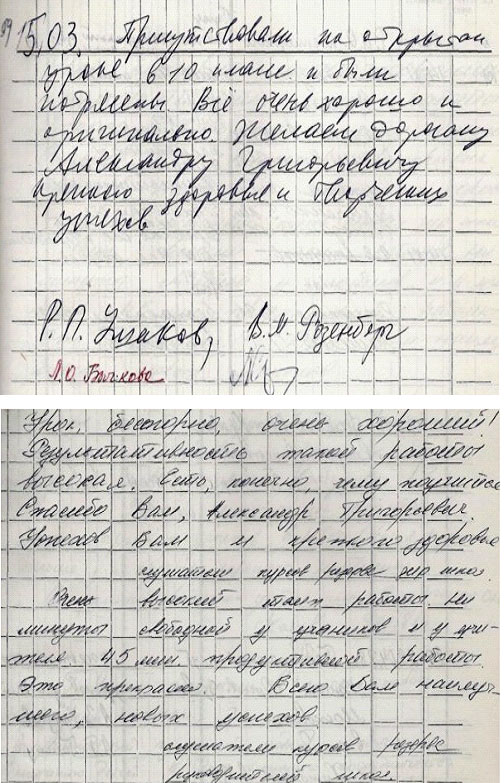 15.03. Присутствовали на открытом
уроке в 10 классе и были
потрясены. Всё очень хорошо и
оригинально. Желаем дорогому
Александру Григорьевичу
крепкого здоровья и творческих
успехов
Р. П. Ушаков, В. М. Розенберг
Л.О. Бычкова
Урок, бесспорно, очень хороший!
Результативность такой работы
высокая. Есть, конечно, чему поучиться
Спасибо Вам, Александр Григорьевич.
Успехов Вам и крепкого здоровья
слушатели курсов резерва
Очень высокий темп работы. Ни
минуты свободной у учеников и у учи-
теля. 45 мин. продуктивной работы.
Это прекрасно. Всего Вам наилуч
шего, новых успехов
слушатели курсов резерва
руководителей школ